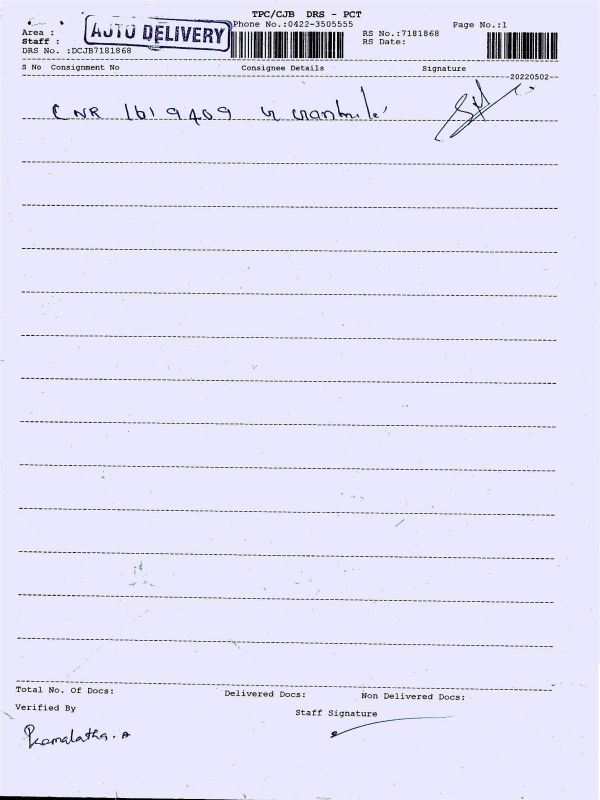 TPC/CJB DRS - PCT
AUTO DELIVERY
Phone No.:0422-3505555
Page No.:1
Area :
RS No.:7181868
Staff :
RS Date:
DRS No. :DCJB7181868
S No Consignment No Consignee Details Signature
20220502
CNR 1619409
Total No. Of Docs: Delivered Docs: Non Delivered Docs:
Verified By Staff Signature
Komalatha. A